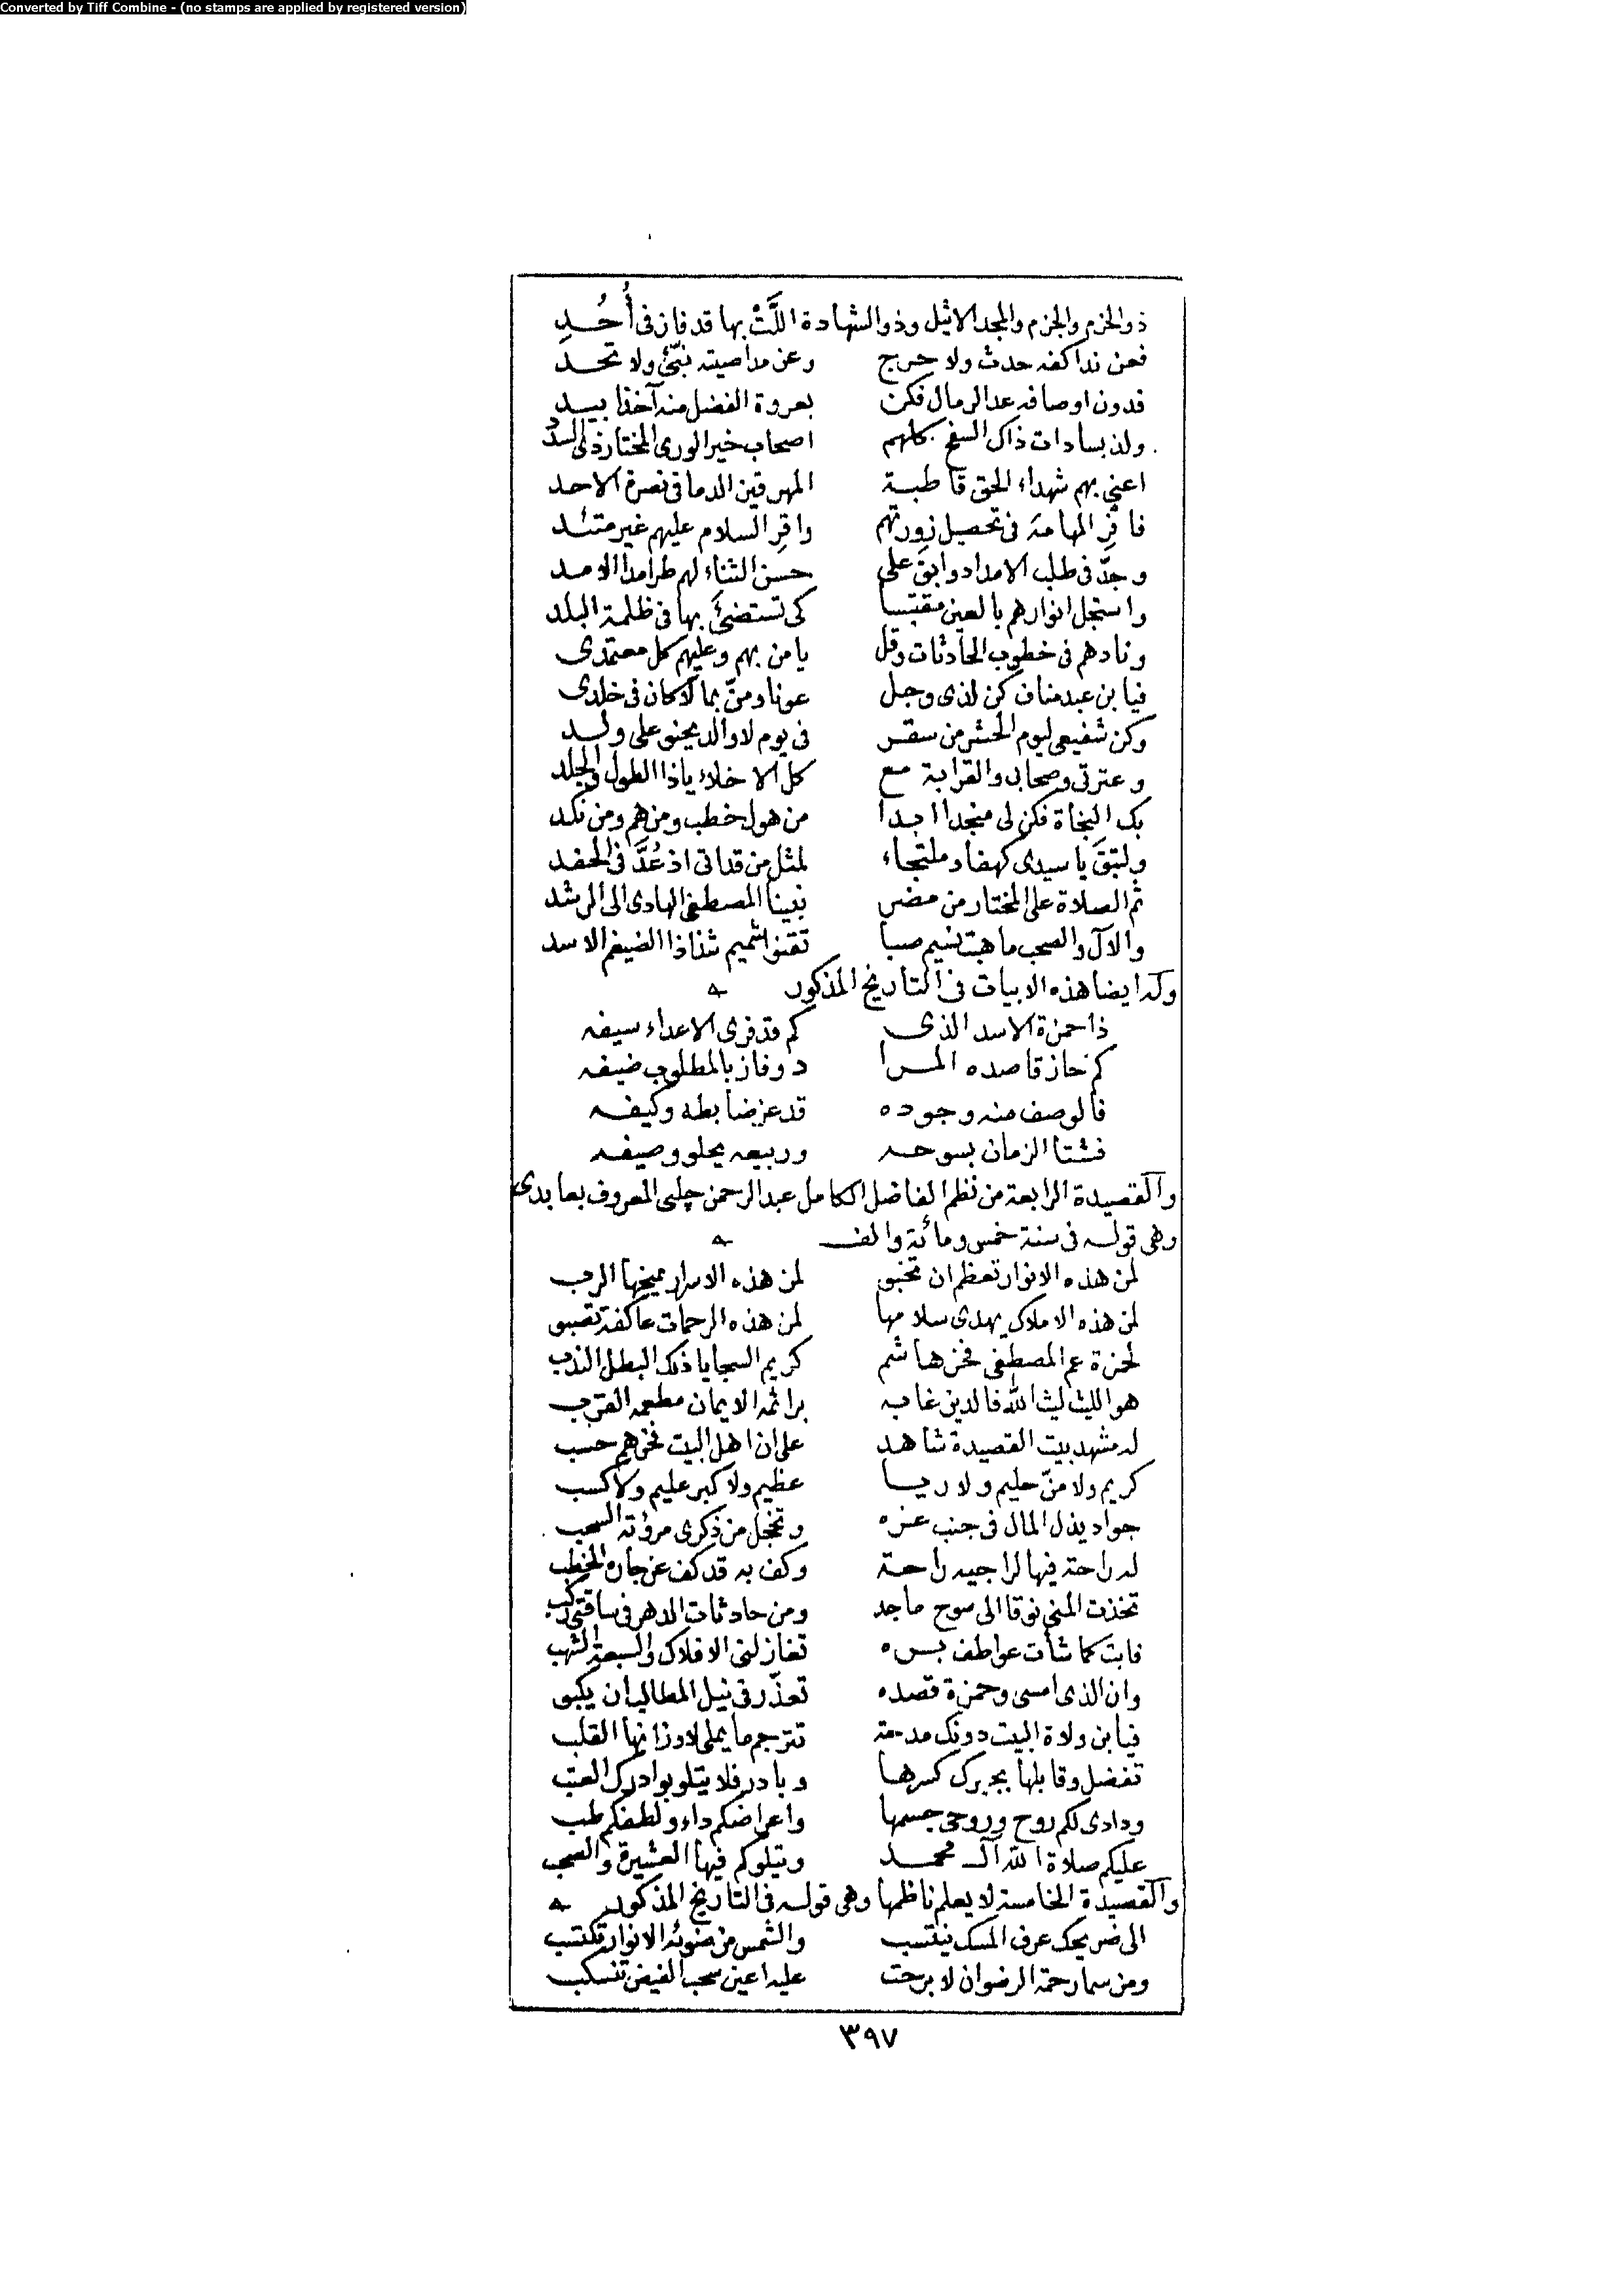 Converted by Tiff Combine - (no stamps are applied by registered version)
ذو الحزم والجزم والمجد الاثيل وذو الشهادة اللَّتْ بها قد فاز فى أُحُدِ
فعن ندا كفه حدث ولا حرج وعن مدا صيته نبّئ ولا تحد
فدون اوصافه عد الرمال فكن بعروة الفضل منه آخذا بيد
ولذ بسادات ذاك السفح كلهم اصحاب خير الورى المختار ذى السدد
اعنى بهم شهداء الحق قاطبة المهرقين الدما فى نصرة الاحد
فافرِ المهامة فى تحصيل زورتهم واقرِ السلام عليهم غير متئد
وجدّ فى طلب الامداد وابق على حسن الثناء لهم طرا مدا الامد
واستجل انوارهم بالعين مقتبسا كى تستضئَ بها فى ظلمة البلد
ونادهم فى خطوب الحادثات وقل يا من بهم وعليهم كل معتمدى
فيا بن عبد مناف كن لذى وجل عونا ومنّ بما لا كان فى خلدى
وكن شفيعى ليوم الحشر من سقر فى يوم لا والد يحنو على ولد
وعترتى وصحابى والقرابة مع كل الاخلاء يا ذا الطول والجلد
بك النجاة فكن لى منجدا ابدا من هول خطب ومن هم ومن نكد
ولتبقَ يا سيدى كهفا وملتجاء لمثل من قد اتى اذ عُدَّ فى الحفد
ثم الصلاة على المختار من مضر نبينا المصطفى الهادى الى الرشد
والال والصحب ما هبت نسيم صبا تقفو شميم شذا ذا الضيغم الاسد
وله ايضا هذه الابيات فى التاريخ المذكور
ذا حمزة الاسد الذى كم قد فرى الاعداء سيفه
كم حاز قاصده المرا د وفاز بالمطلوب ضيفه
فالوصف منه وجوده قد عز ضابطه وكيفه
فشتا الزمان بسوحه وربيعه يحلو وصيفه
والقصيدة الرابعة من نظم الفاضل الكامل عبد الرحمن چلبى المعروف بعابدى
وهى قوله فى سنة خمس ومائة والف
لمن هذه الانوار تعظم ان تخبو لمن هذه الاسرار يمنحها الرب
لمن هذه الاملاك يهدى سلامها لمن هذه الرحمات عاكفة تصبو
لحمزة عم المصطفى فخر هاشم كريم السجايا ذلك البطل الندب
هو الليث ليث الله فالدين غابه براثنه الايمان مطعمه القرب
له مشهد بيت القصيدة شاهد على ان اهل البيت فخرهم حسب
كريم ولا منّ حليم ولا ريا عظيم ولا كبر عليم ولا كسب
جواد يذل المال فى جنب عزه وتخجل من ذكرى مروءته السحب
له راحة فيها لراجيه راحة وكف به قد كف عن جاره الخطب
تخذت المنى نوقا الى سوح ماجد ومن حادثات الدهر فى ساقتى ركب
فابت كما شأت عواطف بره تغازلنى الافلاك والسبعة الشهب
وان الذى امسى وحمزة قصده تعذّر فى نيل المطالب ان يكبو
فيا بن ولاة البيت دونك مدحة تترجم ما يملى لاوزانها القلب
تفضل وقابلها بجبرك كسرها وبادر فلا يتلو بوادرك العتب
ودادى لكم روح وروحى جسمها واعراضكم داء ولطفكم طب
عليكم صلاة الله آل محمد ويتلوكم فيها العشيرة والصحب
والقصيدة الخامسة لا يعلم ناظمها وهى قوله فى التاريخ المذكور
الى ضريحك عرف المسك ينتسب والشمس من ضوئه الانوار تكتسب
ومن سما رحمة الرضوان لا برحت عليه اعين سحب الفيض تنسكب
٣٩٧